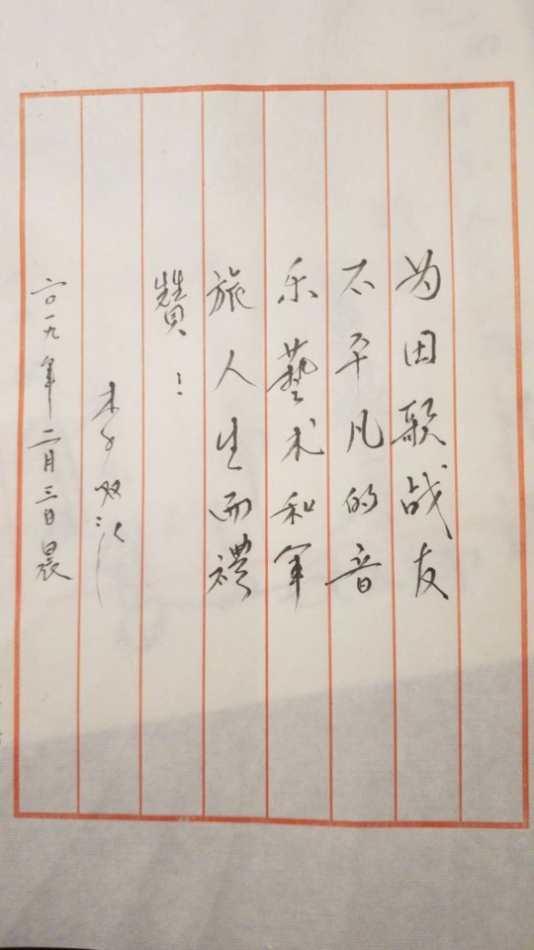 为田歌战友
不平凡的音
乐藝术和军
旅人生而禮
贊！
李双江
二〇一九年二月三日晨